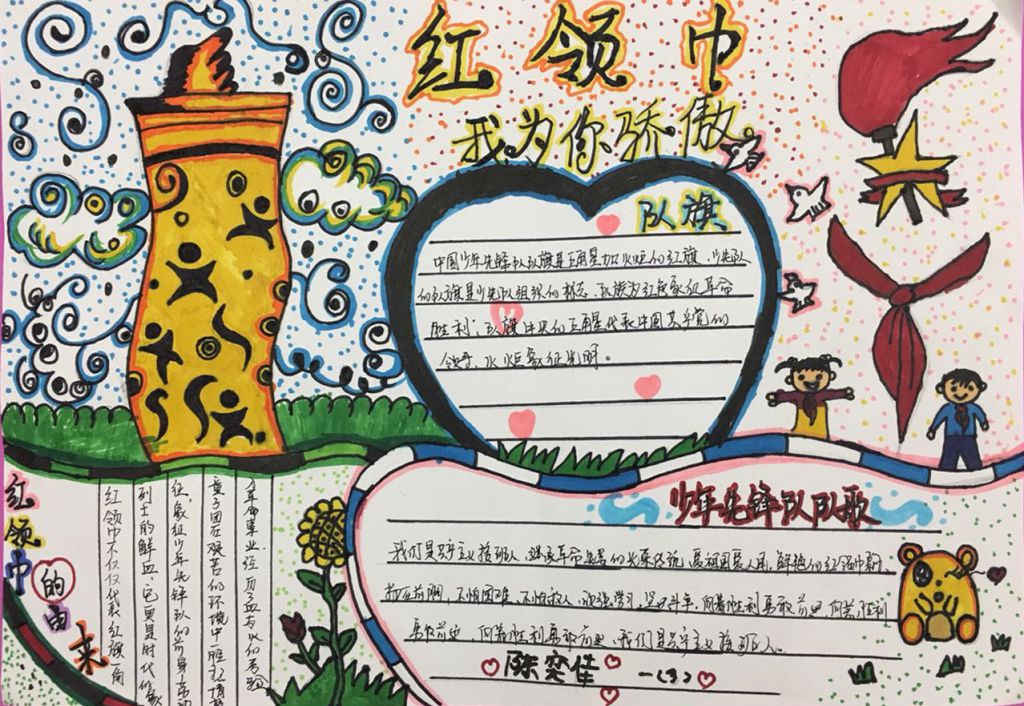 红领巾
我为你骄傲
队旗
中国少年先锋队队旗是五角星加火炬的红旗.少先队
的队旗是少先队组织的标志.队旗为红色象征革命
胜利.队旗中央的五角星代表中国共产党的
领导、火炬象征光明。
少年先锋队队歌
我们是共产主义接班人,继承革命先辈的光荣传统,爱祖国爱人民,鲜艳的红领巾飘
在前胸,不怕困难,不怕敌人,顽强学习,坚决斗争,向着胜利勇敢前进,向着胜利
勇敢前进,向着胜利勇敢前进,我们是共产主义接班人。
陈奕佳 一(3)
红领巾的由来
革命事业.经历了血与火的考验
童子团在艰苦的环境中一
征.象征少年先锋队的前身劳动
烈士的鲜血.它更是时代的象
红领巾不仅仅代表了红旗一角